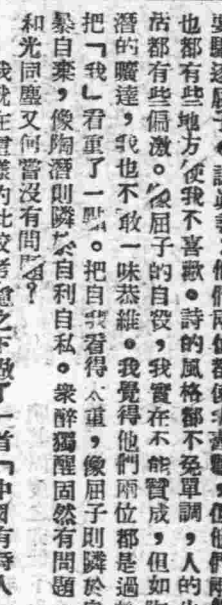 也都有些地方使我不喜歡。詩的風格都不免單調，人的生
活都有些偏激。像屈子的自殺，我實在不能贊成，但如陶
潛的曠達，我也不敢一味恭維。我覺得他們兩位都是過於
把「我」看重了一點。把自我看得太重，像屈子則隣於自
暴自棄，像陶潛則隣於自利自私。衆醉獨醒固然有問題
和光同塵又何嘗沒有問題？
我就在這樣的比較考慮之下做了一首「中國有詩人